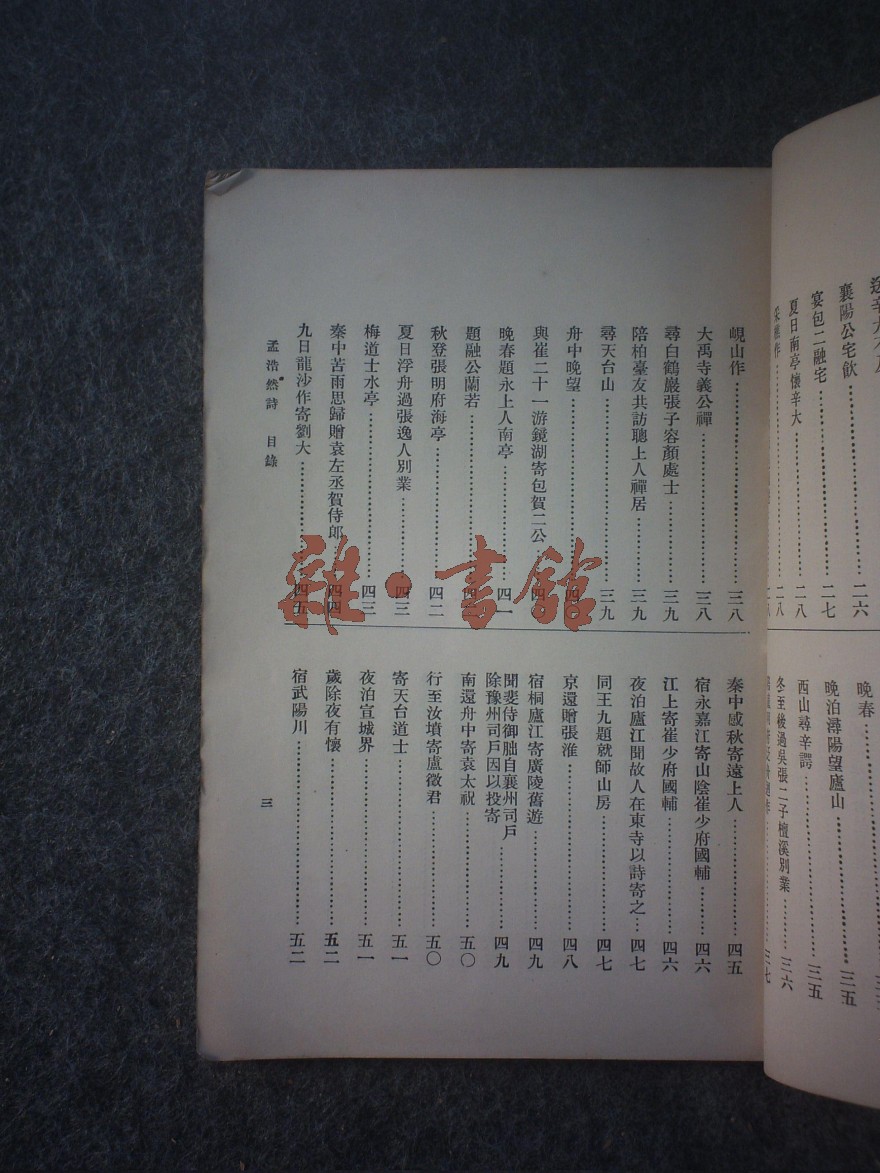 襄陽公宅飲
宴包二融宅……二六
夏日南亭懷辛大……二七
……二八
……二八
晚春
晚泊潯陽望廬山
西山尋辛諤……三五
冬至後過吳張二子檀溪別業……三五
……三六
……三七
峴山作……三八
大禹寺義公禪……三八
尋白鶴巖張子容顏處士……三九
陪柏臺友共訪聰上人禪居……三九
尋天台山……三九
舟中晚望……四〇
與崔二十一游鏡湖寄包賀二公……四
晚春題永上人南亭……四一
題融公蘭若……四
秋登張明府海亭……四二
夏日浮舟過張逸人別業……四三
梅道士水亭……四三
秦中苦雨思歸贈袁左丞賀侍郎……四四
九日龍沙作寄劉大……四五
秦中感秋寄遠上人……四五
宿永嘉江寄山陰崔少府國輔……四六
江上寄崔少府國輔……四六
夜泊廬江聞故人在東寺以詩寄之……四七
同王九題就師山房……四七
京還贈張淮……四八
宿桐廬江寄廣陵舊遊……四九
聞斐侍御朏自襄州司戶
除豫州司戶因以投寄……四九
南還舟中寄袁太祝……五〇
行至汝墳寄盧徵君……五〇
寄天台道士……五一
夜泊宣城界……五一
歲除夜有懷……五二
宿武陽川……五二
孟浩然詩 目錄
三
雜·書館